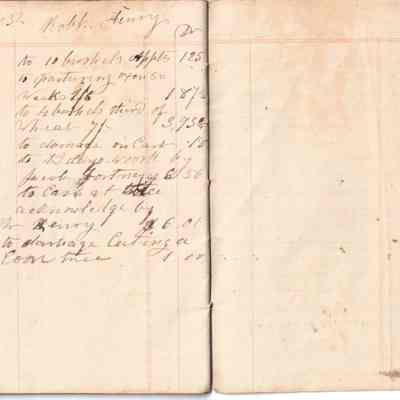 Robt. Henry
Dr
to 10 bushels Apples 125
to pasturing oxen
week 7/6 1 87½
to 4 bushels third of
wheat 7/ 3,75
to damage on Cart
to days work by
Jacob 6 56
to Cash at
acknowledge by
Mr Henry 6.01
to damage Cuting a
Coon tree 1 00